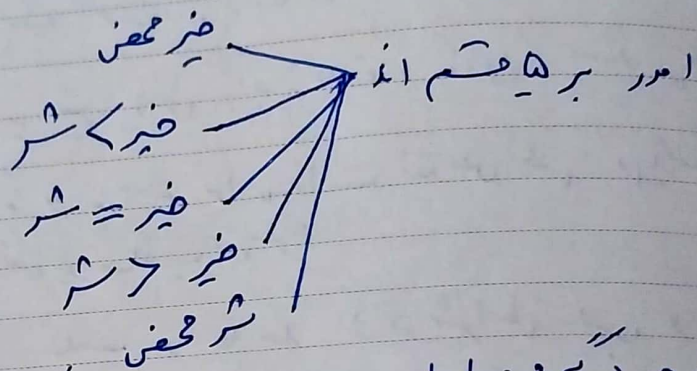 امور بر ۵ قسم اند
خیر محض
خیر > شر
خیر = شر
خیر < شر
شر محض